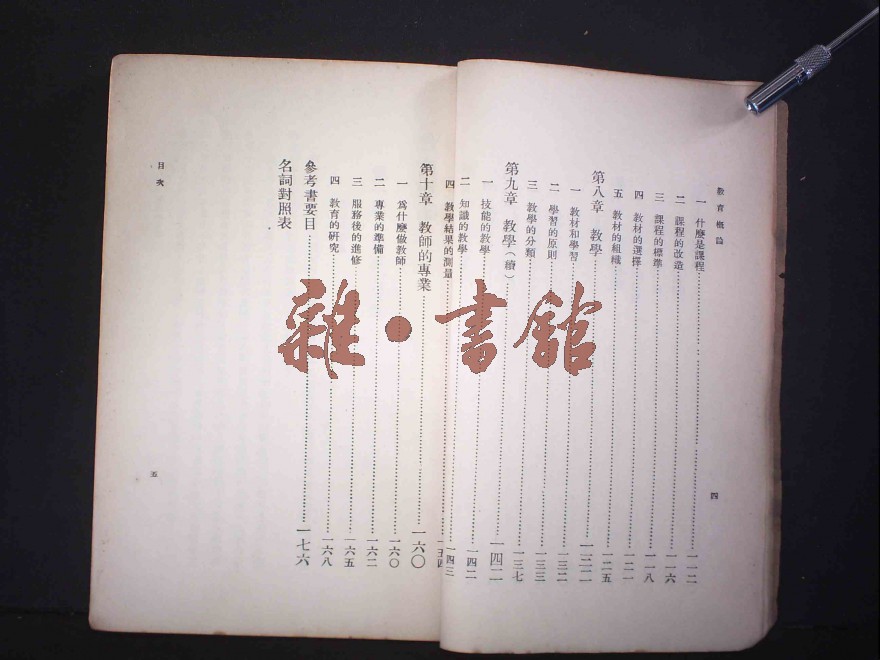 教育概論
一 什麽是課程……一一二
二 課程的改造……一一六
三 課程的標準……一一八
四 教材的選擇……一二一
五 教材的組織……一二五
第八章 教學……一三二
一 教材和學習……一三二
二 學習的原則……一三三
三 教學的分類……一三七
第九章 教學(續)……一四二
一 技能的教學……一四二
二 知識的教學……一四三
四
四 教學結果的測量……一五四
第十章 教師的專業……一六〇
一 爲什麽做教師……一六〇
二 專業的準備……一六二
三 服務後的進修……一六五
四 教育的研究……一六八
參考書要目……一七六
名詞對照表
目次
五
雜·書館